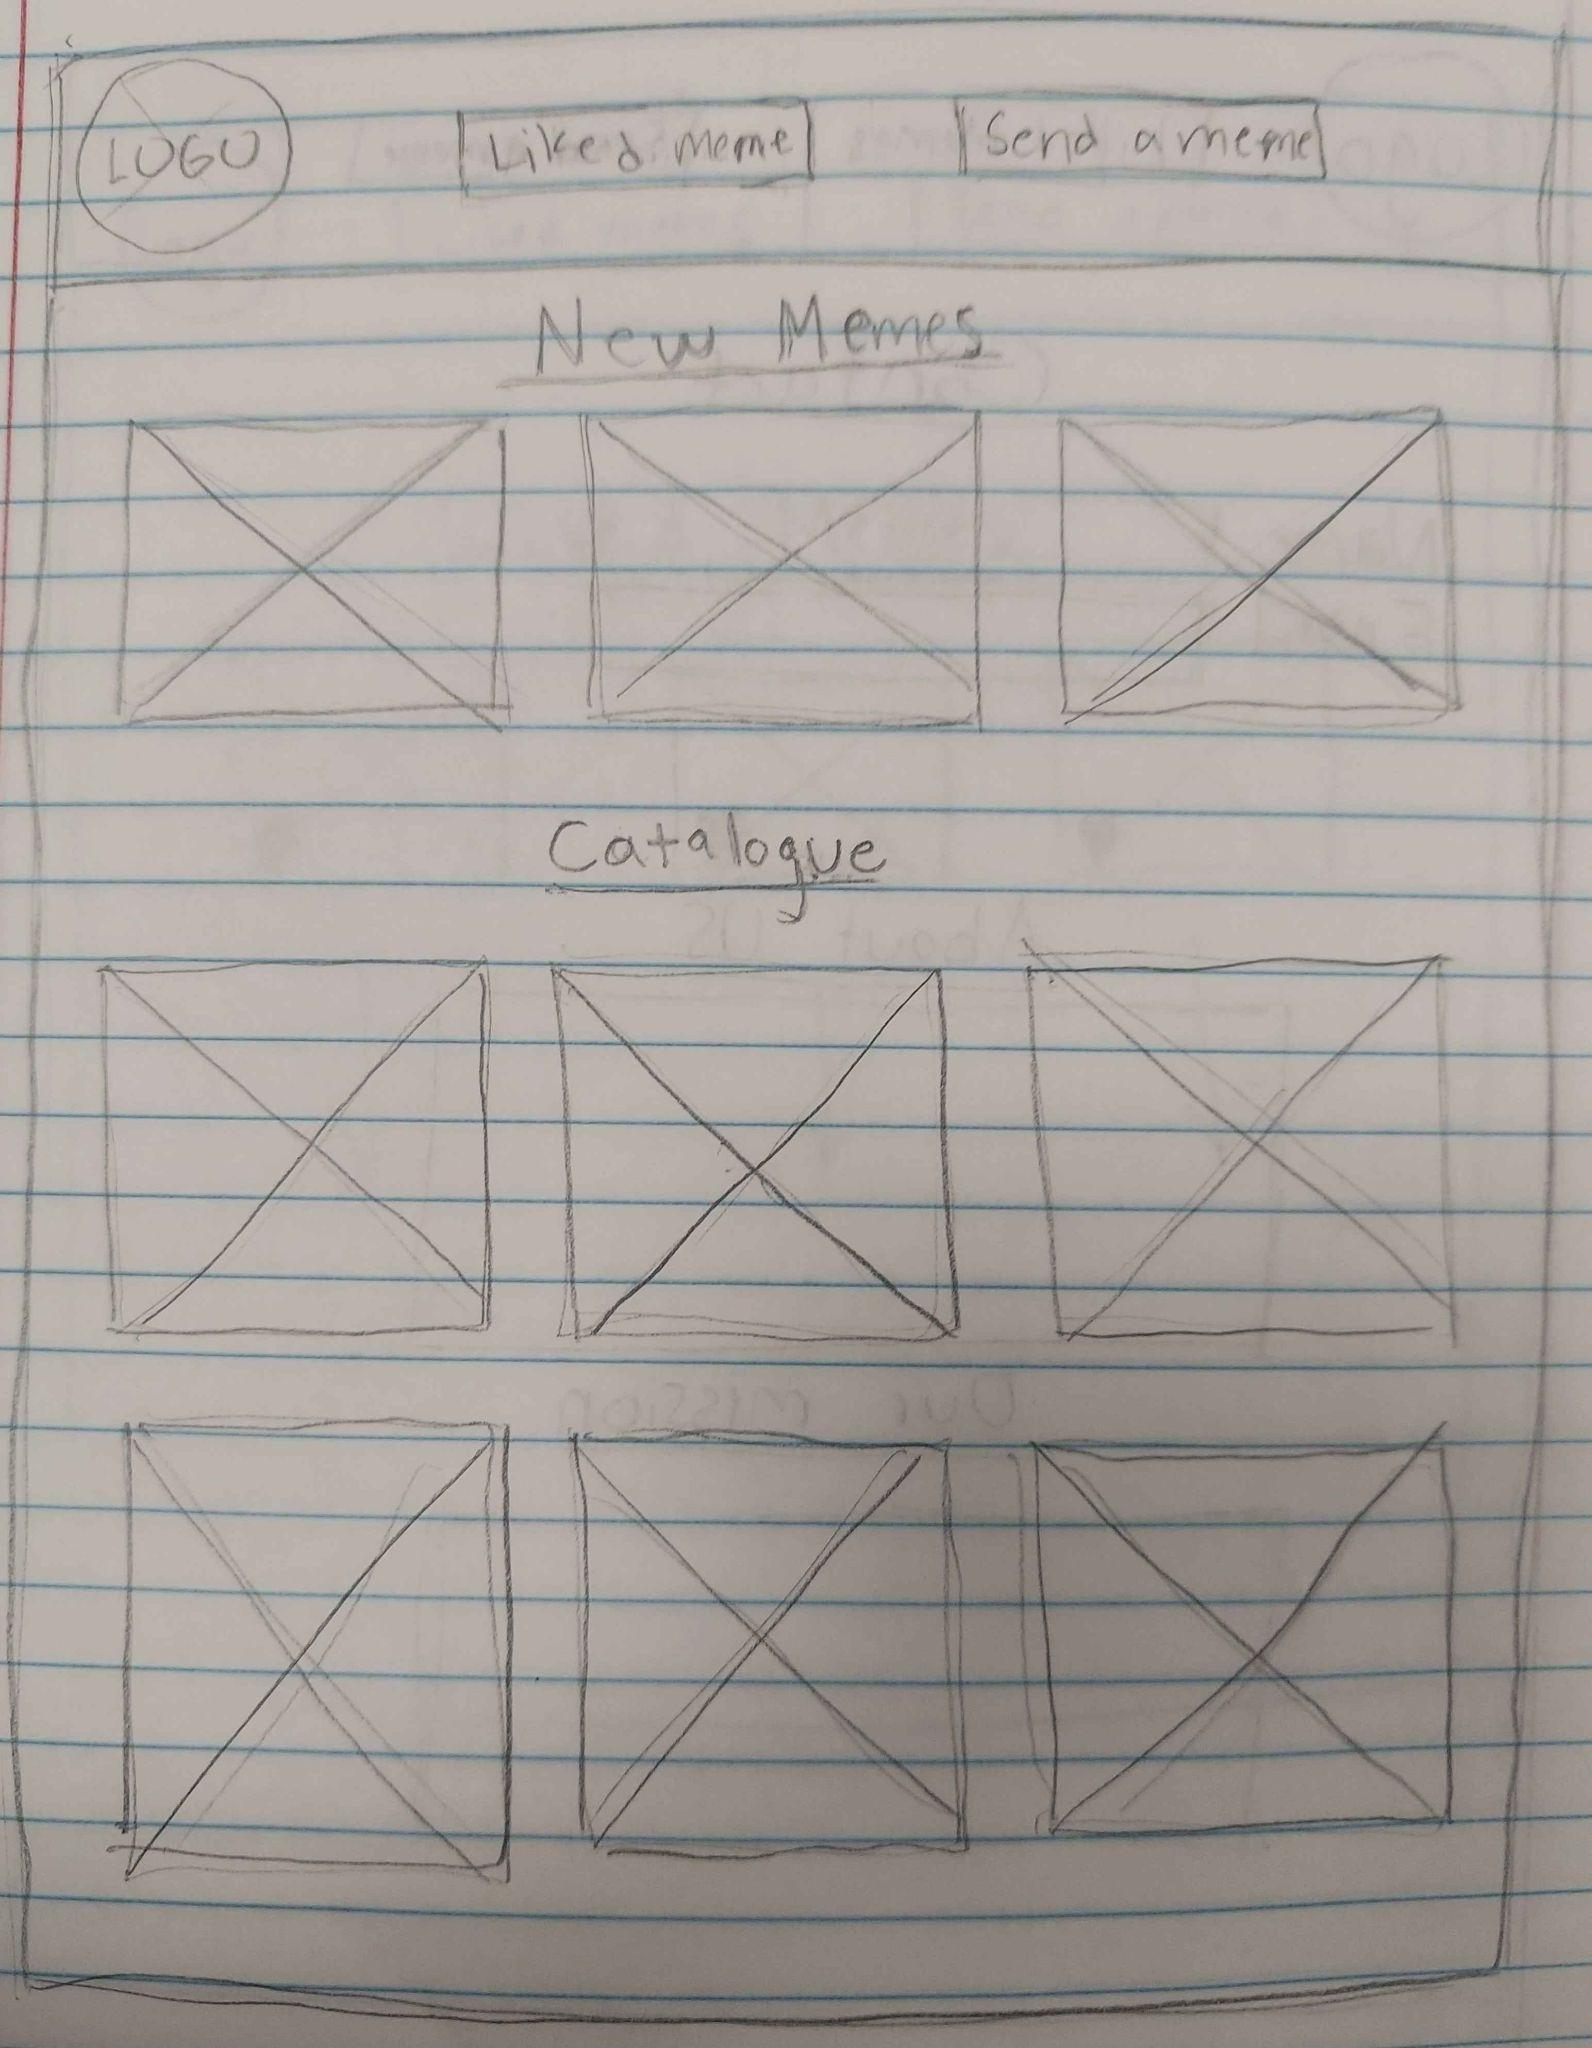 LOGO
Liked meme
Send a meme
New Memes
Catalogue